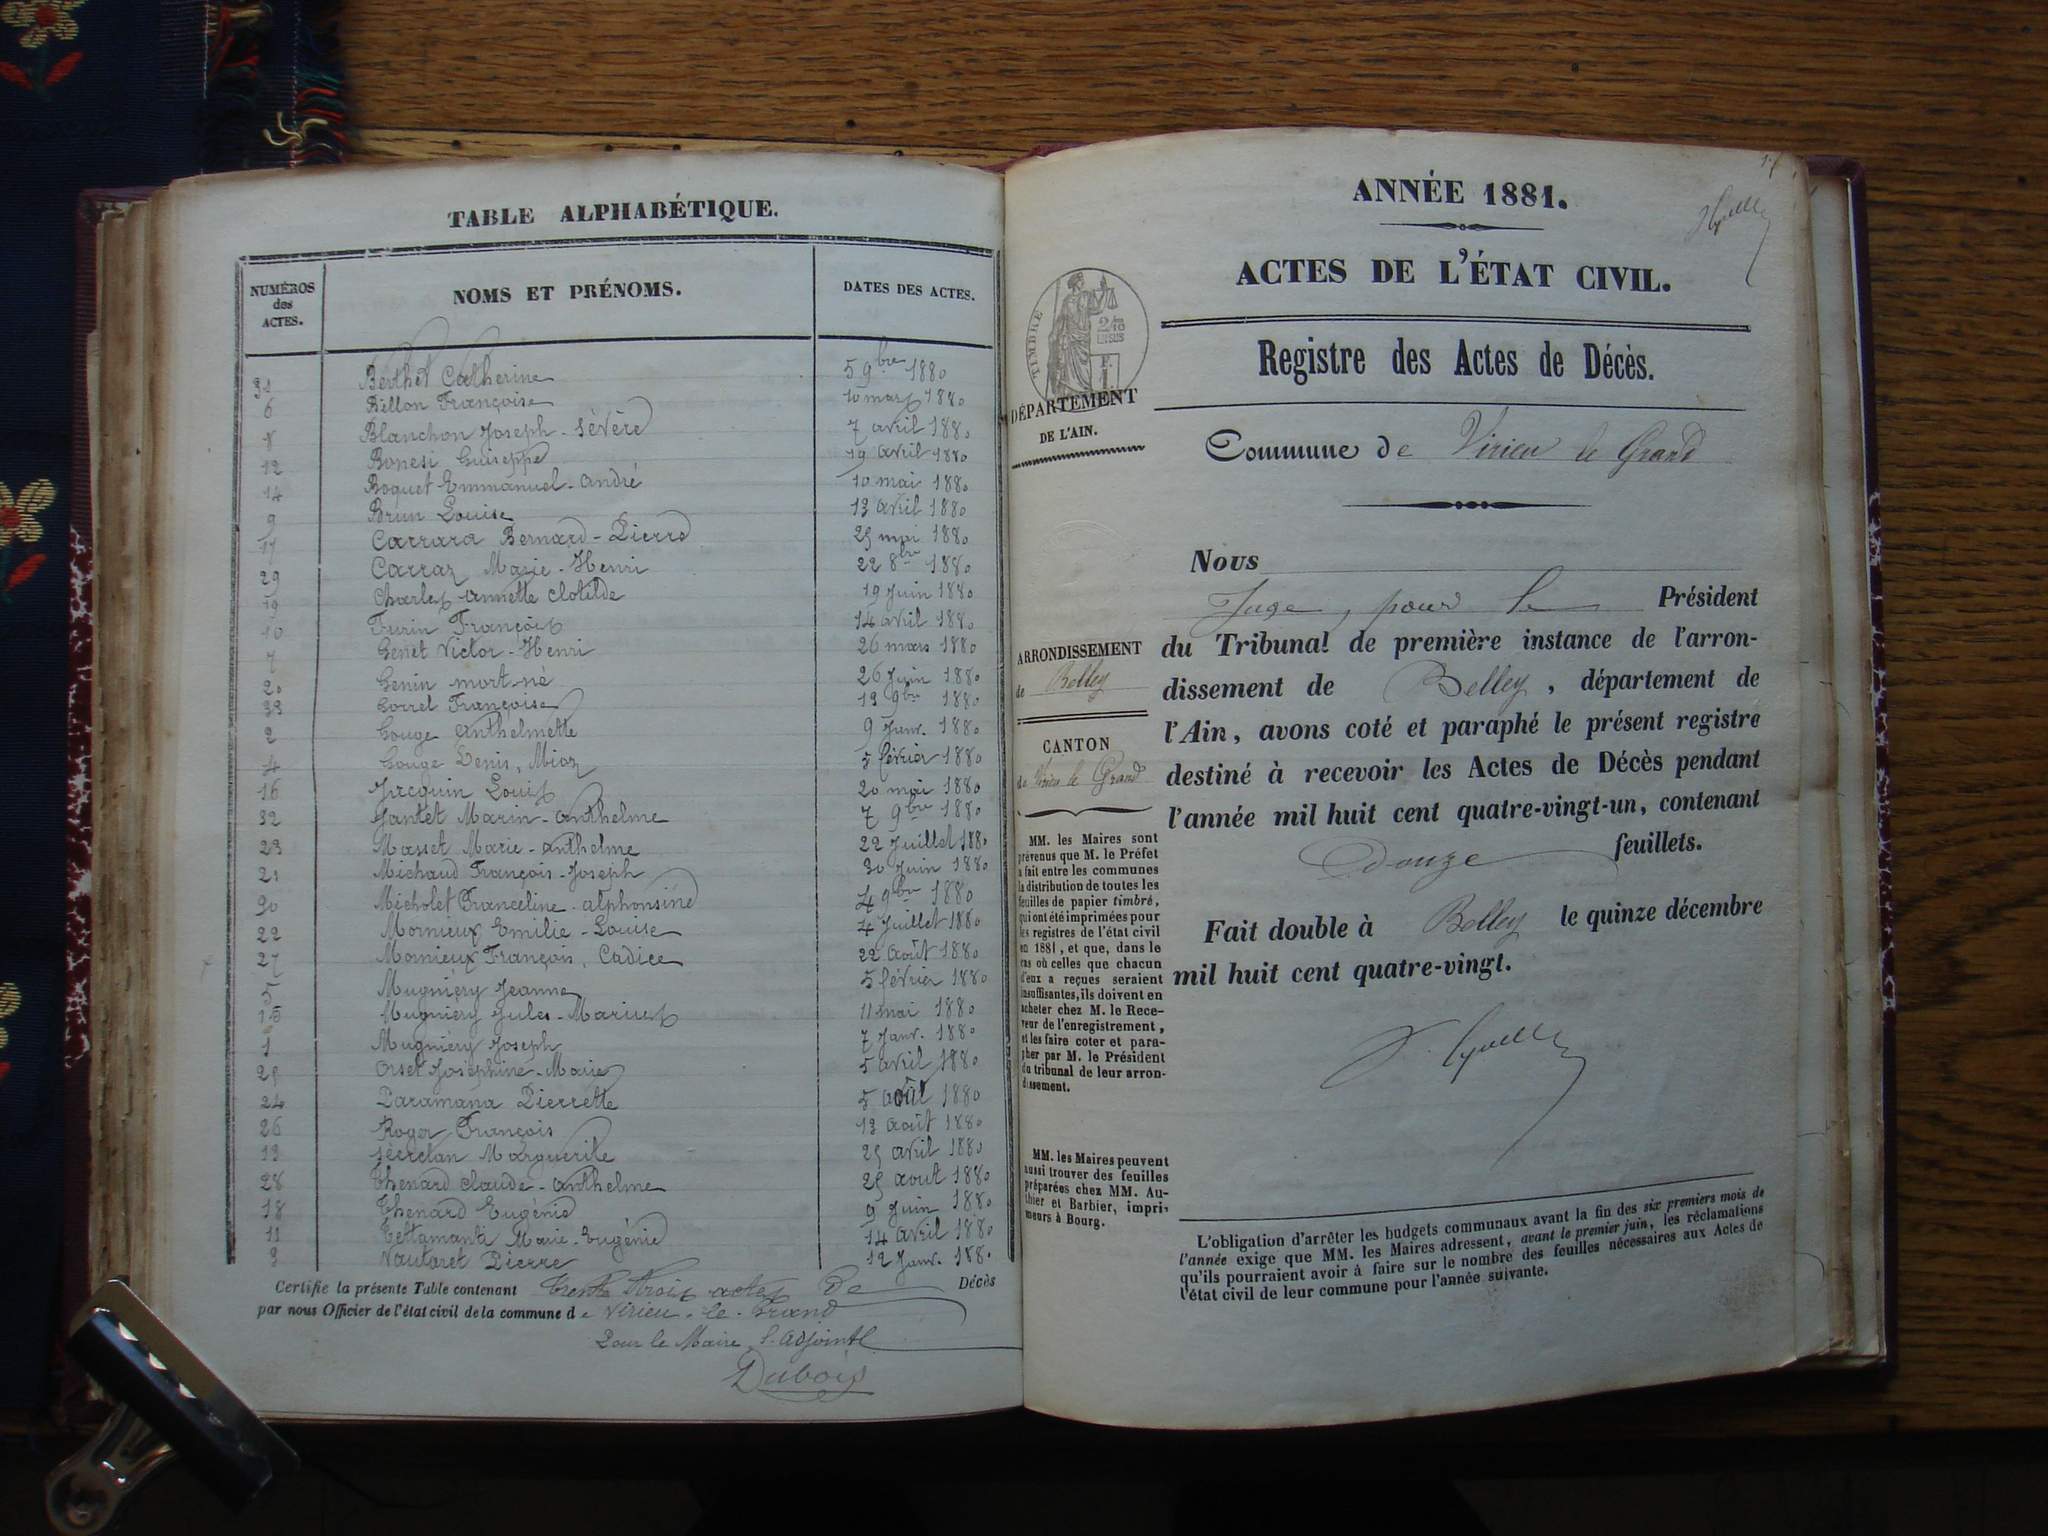 TABLE ALPHABÉTIQUE.
NUMÉROS des ACTES. NOMS ET PRÉNOMS. DATES DES ACTES.
31 Berthet Catherine 5 9bre 1880
6 Billon Françoise 10 mars 1880
8 Blanchon Joseph-Sévère 7 avril 1880
12 Bonesi Guiseppe 19 avril 1880
14 Boquet Emmanuel-André 10 mai 1880
9 Brun Louise 13 avril 1880
17 Carrara Bernard-Pierre 25 mai 1880
29 Carraz Marie-Henri 22 8bre 1880
19 Charles Annette Clotilde 19 Juin 1880
10 Furin François 14 avril 1880
7 Genet Victor-Henri 26 mars 1880
20 Genin mort-né 26 Juin 1880
33 Gorrel Françoise 13 9bre 1880
2 Gouge Anthelmette 9 Janv. 1880
4 Gouge Denis, Mioz 5 février 1880
16 Jacquin Louis 20 mai 1880
32 Jantet Marin-Anthelme 7 9bre 1880
23 Masset Marie-Anthelme 22 Juillet 1880
21 Michaud François-Joseph 30 Juin 1880
30 Micholet Franceline-Alphonsine 4 9bre 1880
22 Mornieux Emilie-Louise 4 Juillet 1880
27 Mornieux François, Cadice 22 août 1880
5 Mugniéry Jeanne 5 février 1880
15 Mugniéry Jules-Marius 11 mai 1880
1 Mugniéry Joseph 7 Janv. 1880
25 Orset Joséphine-Marie 5 avril 1880
24 Paramana Pierrette 5 août 1880
26 Roger François 13 août 1880
13 Marguerite 25 avril 1880
28 Thenard Claude-Anthelme 25 aout 1880
18 Thenard Eugénie 9 Juin 1880
11 Tettamanti Marie-Eugénie 14 avril 1880
3 Vautaret Pierre 12 Janv. 1880
Certifie la présente Table contenant trente trois actes de Décès
par nous Officier de l'état civil de la commune de Virieu-le-Grand
Pour le Maire, l'adjoint
Dubois
ANNÉE 1881.
ACTES DE L'ÉTAT CIVIL.
Registre des Actes de Décès.
TIMBRE
DÉPARTEMENT
DE L'AIN.
Commune de Virieu le Grand
Nous
Juge, pour le Président
du Tribunal de première instance de l'arron-
dissement de Belley, département de
l'Ain, avons coté et paraphé le présent registre
destiné à recevoir les Actes de Décès pendant
l'année mil huit cent quatre-vingt-un, contenant
Douze feuillets.
Fait double à Belley le quinze décembre
mil huit cent quatre-vingt.
ARRONDISSEMENT
de Belley
CANTON
de Virieu le Grand
MM. les Maires sont
prévenus que M. le Préfet
a fait entre les communes
la distribution de toutes les
feuilles de papier timbré,
qui ont été imprimées pour
les registres de l'état civil
en 1881, et que, dans le
cas où celles que chacun
d'eux a reçues seraient
insuffisantes, ils doivent en
acheter chez M. le Rece-
veur de l'enregistrement,
et les faire coter et para-
pher par M. le Président
du tribunal de leur arron-
dissement.
MM. les Maires peuvent
aussi trouver des feuilles
préparées chez MM. Au-
thier et Barbier, impri-
meurs à Bourg.
L'obligation d'arrêter les budgets communaux avant la fin des six premiers mois de
l'année exige que MM. les Maires adressent, avant le premier juin, les réclamations
qu'ils pourraient avoir à faire sur le nombre des feuilles nécessaires aux Actes de
l'état civil de leur commune pour l'année suivante.